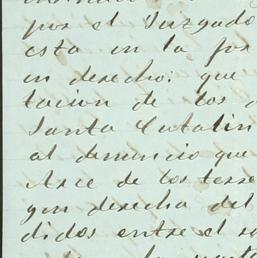 por el Juzgado
esta en la for
en derecho: que
tacion de los
Santa Catalin
al denuncio que
Arce de los terre
gen derecha del
didos entre el